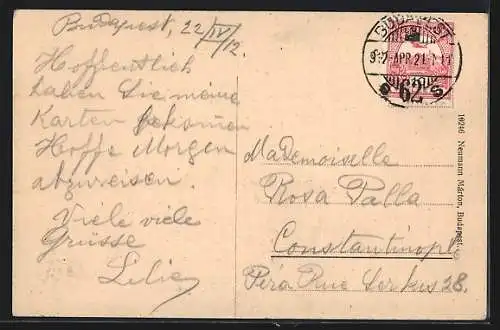 Budapest, 22/IV/12.
Hoffentlich
haben Sie meine
Karten bekommen
Hoffe Morgen
abzureisen.
Viele viele
Grüsse
Lilie
BUDAPEST
912 APR 21
62
Mademoiselle
Rosa Palla
Constantinopl
Péra Rue Serkis 28.
16246 Neumann Márton, Budapest.